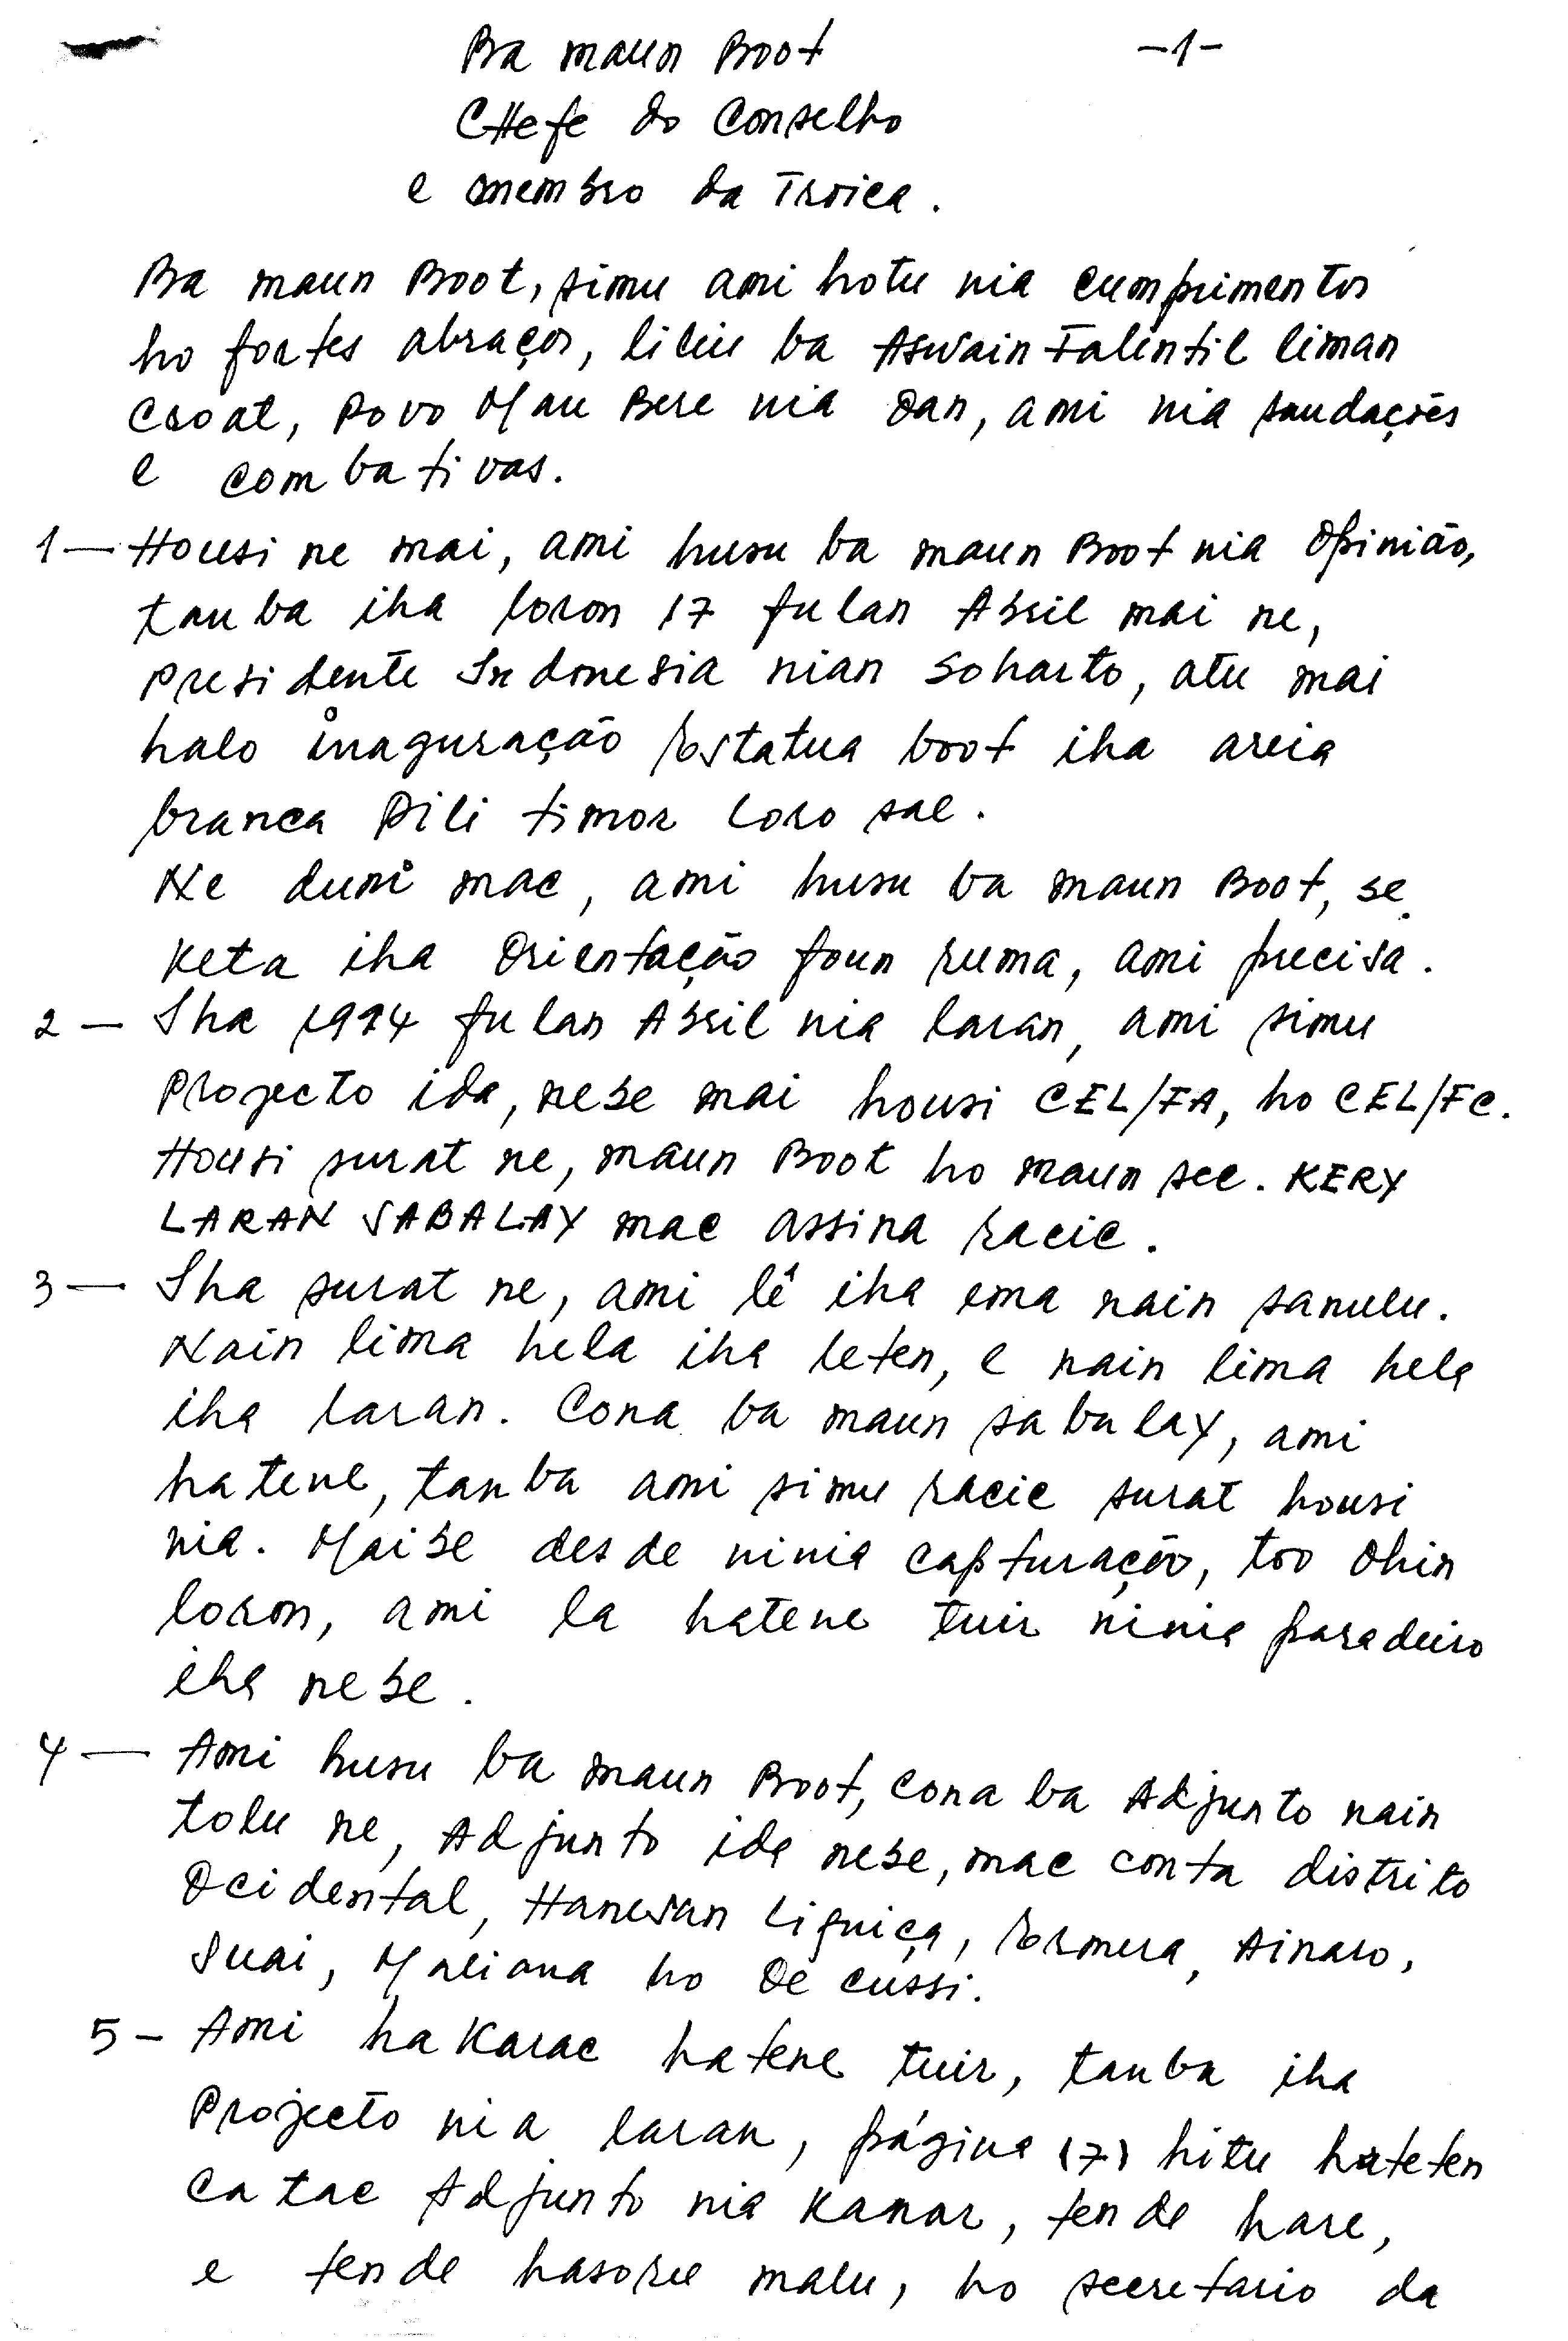 Ba maun Boot -1-
CHefe do Conselho
e membro da Troica.
Ba maun Boot, simu ami hotu nia cumprimentos
ho fortes abraços, liliu ba Aswain Falintil liman
Croat, Povo Mau Bere nia Oan, ami nia saudações
e combativas.
1 — Housi ne mai, ami husu ba maun Boot nia Opinião,
tauba iha loron 17 fulan Abril mai ne,
Presidente Indonesia nian Soharto, atu mai
halo inaguração Estatua boot iha areia
branca Dili timor Loro sae.
Ne duni mac, ami husu ba maun Boot, se
Keta iha Orientação foun ruma, ami precisa.
2 — Iha 1994 fulan Abril nia laran, ami simu
Projecto ida, nebe mai housi CEL/FA, ho CEL/FC.
Housi surat ne, maun Boot ho maun sec. KERY
LARAN SABALAY mac assina racic.
3 — Iha surat ne, ami lê iha ema nain sanulu.
Nain lima hela iha leten, e nain lima hela
iha laran. Cona ba maun sabalay, ami
hatene, tanba ami simu racic surat housi
nia. Maibe desde ninia capturação, too Ohin
loron, ami la hatene tuir ninia paradeiro
iha nebe.
4 — Ami husu ba maun Boot, cona ba Adjunto nain
tolu ne, Adjunto ida nebe, mac conta distrito
Ocidental, Hanesan Liquiça, Ermera, Ainaro,
Suai, Maliana ho Oe cussi.
5 - Ami ha Karac hatene tuir, tanba iha
Projecto nia laran, página (7) hitu hateten
Catac Adjunto nia Kanar, tende hare,
e tende hasoru malu, ho secretario da